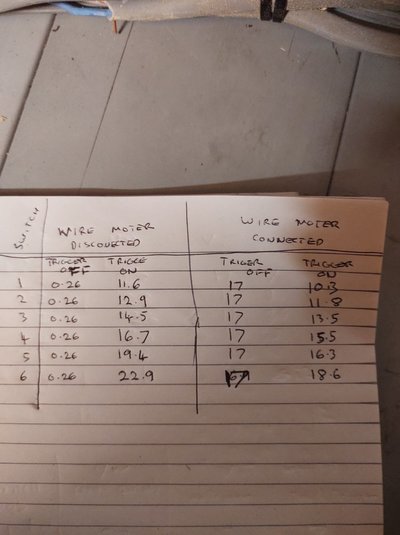 SWITCH
WIRE MOTER DISCONECTED WIRE MOTER CONNECTED
TRIGGER OFF TRIGGE ON TRIGER OFF TRIGGER ON
1 0.26 11.6 17 10.3
2 0.26 12.9 17 11.8
3 0.26 14.5 17 13.5
4 0.26 16.7 17 15.5
5 0.26 19.4 17 16.3
6 0.26 22.9 17 18.6